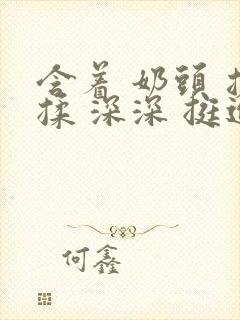 含着 奶頭 
揉 深深 挺
何鑫